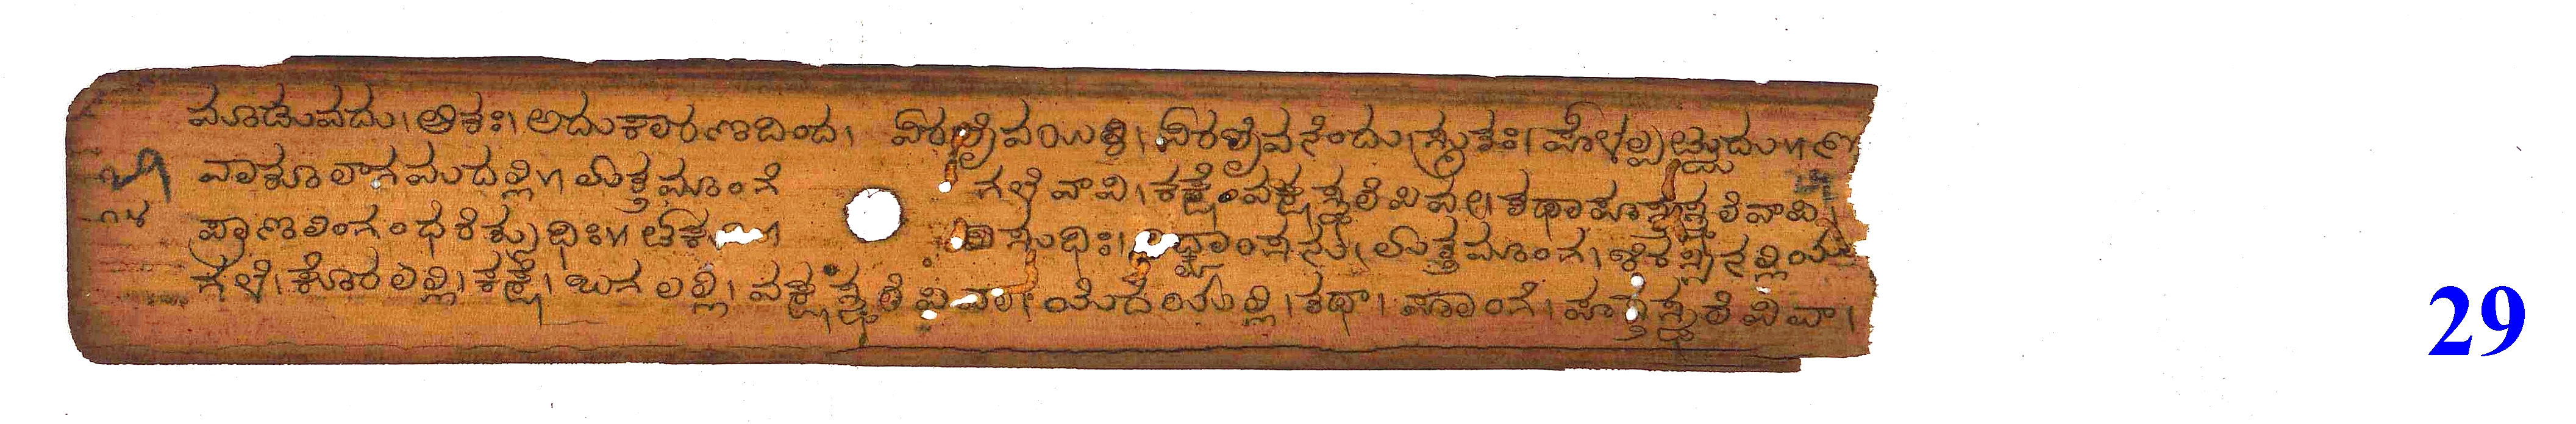 ಮಾಡುವದು। ಅತಃ। ಅದುಕಾರಣದಿಂದ। ವೀರಶೈವಯಿತಿ। ವೀರಶೈವನೆಂದು। ಸ್ಮೃತಃ। ಪೇಳಲ್ಪಟ್ಟುದು॥
ವಾತೂಲಾಗಮದಲ್ಲಿ॥ ಉತ್ತಮಾಂಗೆ ಗಳೆ ವಾಪಿ। ಕಕ್ಷೆ ವಕ್ಷಸ್ಥಲೆಪಿ ವಾ। ತಥಾ ಹಸ್ತಸ್ಥಲೆ ವಾಪಿ
೧೪ ಪ್ರಾಣಲಿಂಗಂ ಧರೆತ್ಸುಧಿಃ॥ ಸುಧಿಃ। ಉತ್ತಮಾಂಗೆ। ಶಿರಸ್ಸಿನಲ್ಲಿಯು
ಗಳೆ। ಕೊರಲಲ್ಲಿ। ಕಕ್ಷೆ। ಬಗಲಲ್ಲಿ। ವಕ್ಷಸ್ಥಲೆಪಿ ವಾ। ಯೆದೆಯಲ್ಲಿ। ತಥಾ। ಹಾಂಗೆ। ಹಸ್ತಸ್ಥಲೆಪಿ ವಾ।
29